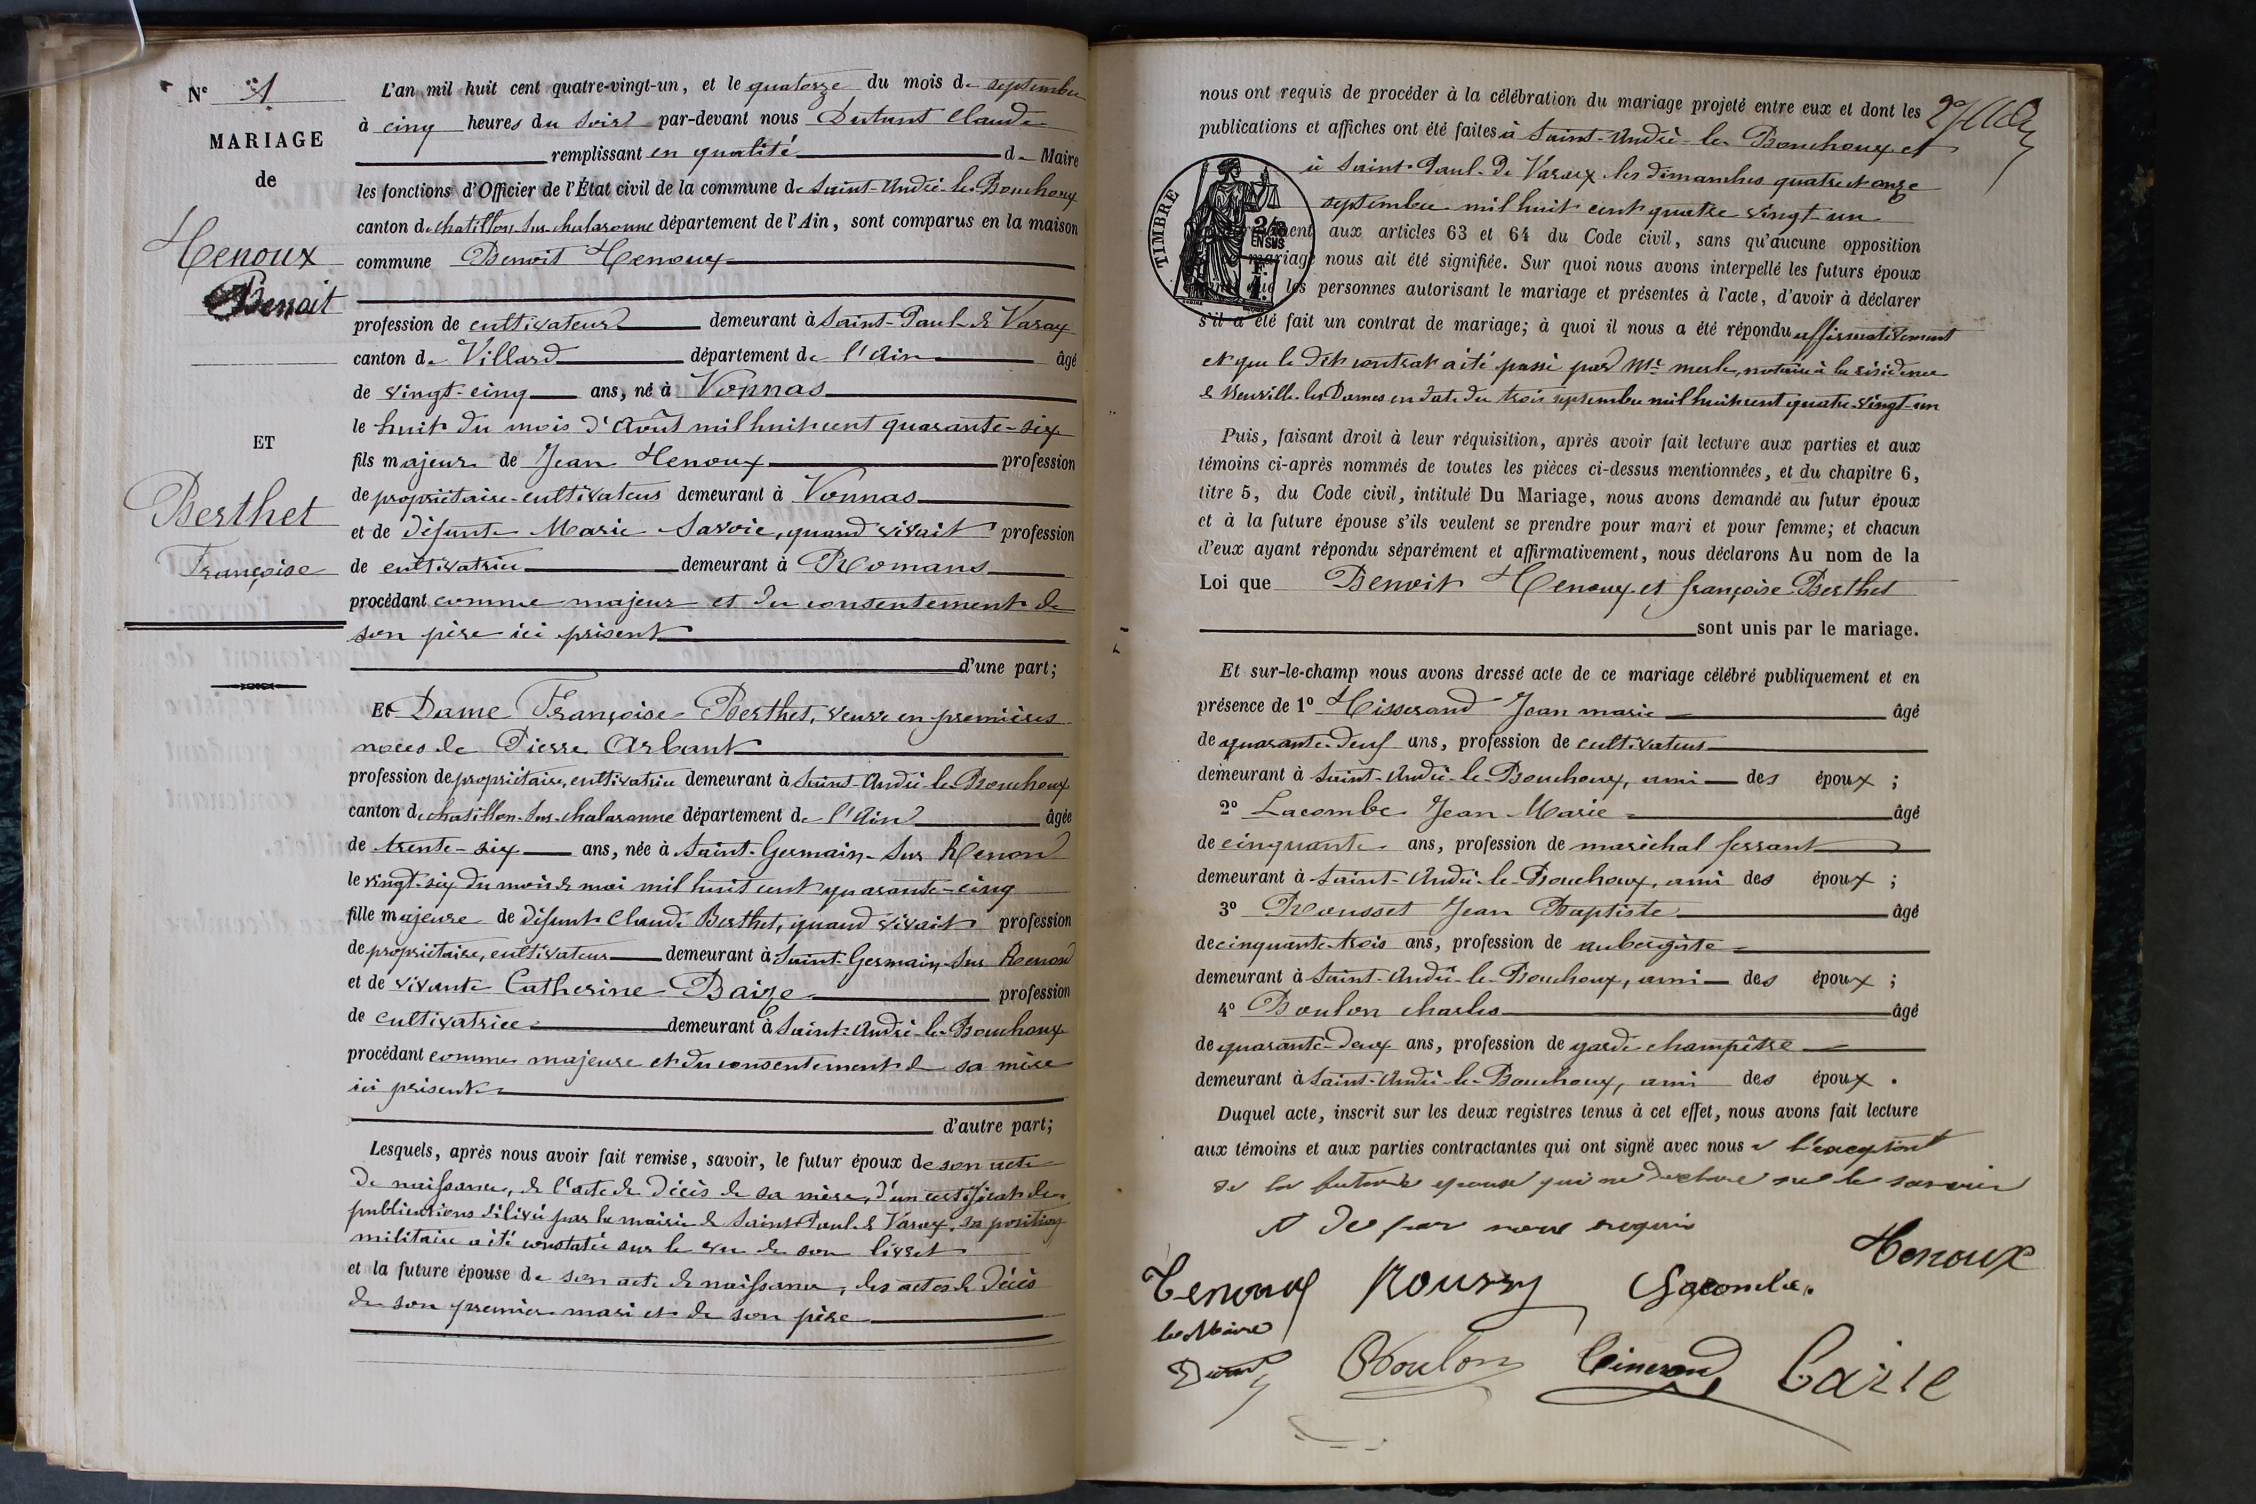 N° 1
MARIAGE
de
Henoux
Benoit
ET
Berthet
Françoise
L'an mil huit cent quatre-vingt-un, et le quatorze du mois de septembre
à cinq heures du soir par-devant nous Dutant Claude
remplissant en qualité de Maire
les fonctions d'Officier de l'État civil de la commune de Saint-André-le-Bouchoux
canton de chatillon-sur-chalaronne département de l'Ain, sont comparus en la maison
commune Benoit Henoux
profession de cultivateur demeurant à Saint-Paul-de Varax
canton de Villard département de l'Ain âgé
de vingt-cinq ans, né à Vonnas
le huit du mois d'Août mil huit cent quarante-six
fils majeur de Jean Henoux profession
de propriétaire-cultivateur demeurant à Vonnas
et de défunte Marie Savoie, quand vivait profession
de cultivatrice demeurant à Romans
procédant comme majeur et du consentement de
son père ici présent
d'une part;
Et Dame Françoise Berthet, veuve en premières
noces de Pierre Arbant
profession de propriétaire, cultivatrice demeurant à Saint-André-le-Bouchoux
canton de chatillon-sur-chalaronne département de l'Ain âgée
de trente-six ans, née à Saint-Germain-sur Renon
le vingt-six du mois de mai mil huit cent quarante-cinq
fille majeure de défunt Claude Berthet, quand vivait profession
de propriétaire, cultivateur demeurant à Saint-Germain-sur Renon
et de vivante Catherine Baize profession
de cultivatrice demeurant à Saint-André-le-Bouchoux
procédant comme majeure et du consentement de sa mère
ici présente
d'autre part;
Lesquels, après nous avoir fait remise, savoir, le futur époux de son acte
de naissance, de l'acte de décès de sa mère, d'un certificat de
publications délivré par la mairie de Saint-Paul-de Varax, sa position
militaire a été constatée sur le vu de son livret
et la future épouse de son acte de naissance, des actes de décès
de son premier mari et de son père
nous ont requis de procéder à la célébration du mariage projeté entre eux et dont les
publications et affiches ont été faites à Saint-André-le-Bouchoux et
à Saint-Paul-de Varax les dimanches quatre et onze
septembre mil huit cent quatre vingt un
TIMBRE
2/10
EN SUS
aux articles 63 et 64 du Code civil, sans qu'aucune opposition
mariage nous ait été signifiée. Sur quoi nous avons interpellé les futurs époux
que les personnes autorisant le mariage et présentes à l'acte, d'avoir à déclarer
s'il a été fait un contrat de mariage; à quoi il nous a été répondu affirmativement
et que le dit contrat a été passé par Mr merle, notaire à la résidence
de Neuville-les-Dames en date du trois septembre mil huit cent quatre-vingt-un
Puis, faisant droit à leur réquisition, après avoir fait lecture aux parties et aux
témoins ci-après nommés de toutes les pièces ci-dessus mentionnées, et du chapitre 6,
titre 5, du Code civil, intitulé Du Mariage, nous avons demandé au futur époux
et à la future épouse s'ils veulent se prendre pour mari et pour femme; et chacun
d'eux ayant répondu séparément et affirmativement, nous déclarons Au nom de la
Loi que Benoit Henoux et françoise Berthet
sont unis par le mariage.
Et sur-le-champ nous avons dressé acte de ce mariage célébré publiquement et en
présence de 1° Jean marie âgé
de quarante-neuf ans, profession de cultivateur
demeurant à Saint-André-le-Bouchoux, ami des époux ;
2° Lacombe Jean-Marie âgé
de cinquante ans, profession de maréchal ferrant
demeurant à Saint-André-le-Bouchoux, ami des époux ;
3° Rousset Jean Baptiste âgé
de cinquante-trois ans, profession de aubergiste
demeurant à Saint-André-le-Bouchoux, ami des époux ;
4° Boulon charles âgé
de quarante-deux ans, profession de garde champêtre
demeurant à Saint-André-le-Bouchoux, ami des époux .
Duquel acte, inscrit sur les deux registres tenus à cet effet, nous avons fait lecture
aux témoins et aux parties contractantes qui ont signé avec nous à l'exception
de la future epouse qui ne declare ne le savoir
de par nous requis
Henoux
Lacombe
le Maire
Boulon